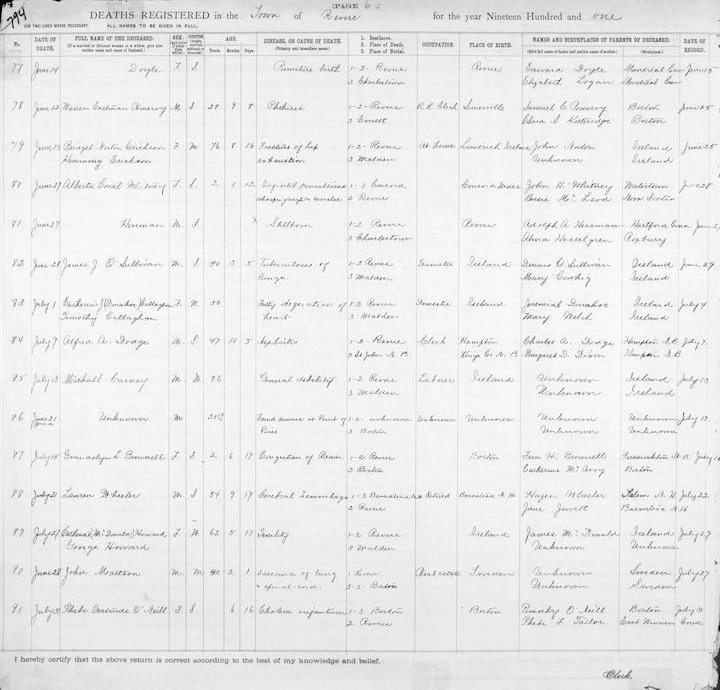 794
PAGE 63
DEATHS REGISTERED in the Town of Revere for the year Nineteen Hundred and one
USE TWO LINES WHERE NECESSARY. ALL NAMES TO BE GIVEN IN FULL.
No. DATE OF DEATH. FULL NAME OF THE DECEASED. SEX AGE. DISEASE, OR CAUSE OF DEATH. 1. Residence. OCCUPATION. PLACE OF BIRTH. NAMES AND BIRTHPLACES OF PARENTS OF DECEASED. DATE OF RECORD.
(Primary and immediate cause.) 2. Place of Death.
Years. Months. Days. 3. Place of Burial.
77 June 14 Doyle F. S. Premature birth 1-2- Revere Revere Edward Doyle Montreal Can June 15
3 Charlestown Elizabeth Logan Montreal Can
78 June 22 Warren Cochran Pomeroy M S 28 9 8 Phthisis 1-2- Revere R.R. Clerk Somerville Samuel C Pomeroy Boston June 25
3 Everett Edna S Kittredge Boston
79 Bridget Norton Erickson F M 76 8 16 Fracture of hip 1-2- Revere At home Limerick Ireland John Norton Ireland June 25
Erickson exhaustion 3 Malden Unknown Ireland
81 June 27 Alberta Coral Whitney F. S. 2 1 12 Infantile convulsions 1-3 Concord Concord Mass John H. Whitney Watertown June 28
whooping cough & measles 2 Revere Bessie McLeod Nova Scotia
81 June 27 Herman M S Stillborn 1-2 Revere Revere Adolph A Herman Hartford Conn
3 Charlestown Alma Hasselgren Roxbury
82 June 28 James J O'Sullivan M. S 40 3 5 Tuberculosis of 1-2 Revere Teamster Ireland Dennis O Sullivan Ireland June 29
lungs 3 Malden Mary Ireland
83 July 1 Catherine (Donahoe) Callaghan F. 50 Fatty degeration of 1-2 Revere Domestic Ireland Jeremiah Donahoe Ireland July 4
Timothy Callaghan heart 3 Malden Mary Welsh Ireland
84 July 7 Alfred A. Dodge M S 47 10 5 Nephritis 1-2 Revere Clerk Hampton Charles A. Dodge Hampton N.B July 7
3 St John N.B Kings Co N.B Margaret D. Dixon Hampton N.B
85 July 13 Michael Carney M. W. 86 General debility 1-2 Revere Laborer Ireland Unknown Ireland July 13
3 Malden Unknown Ireland
86 June 21 Unknown M Found drowned at Point of 1-2 unknown Unknown Unknown Unknown Unknown July 13
Pines 3 Boston Unknown Unknown
87 July 15 Gwendolyn L Brownell F. S. 2 6 17 Congestion of Brain 1-2 Revere Boston Fred H. Brownell Fredericton N.B.
3 Boston Catherine McAvoy Boston
88 July 21 Lauren Wheeler M S 54 9 17 Cerebral hemorrhage 1-3 Barnstead N.H Retired Barnstead N.H Hazen Wheeler Salem N.H July 22
2 Revere Jane Jewett Barnstead N.H
89 July 27 Catherine (McDonald) Howard F. W. 62 5 17 Senility 1-2 Revere Ireland James McDonald Ireland July 27
George Howard 3 Malden Unknown Unknown
90 June 28 John Mattson M. M 42 2 1 of lung 1 Revere Real estate Sweden Unknown Sweden July 27
& spinal cord 2-3- Boston Unknown Sweden
91 July 31 Phebe Gertrude O'Neill F S 6 16 Cholera infantum 1-3 Boston Boston Timothy O'Neill Boston July 31
2 Revere Phebe F Tailor East Conn
I hereby certify that the above return is correct according to the best of my knowledge and belief.
Clerk.